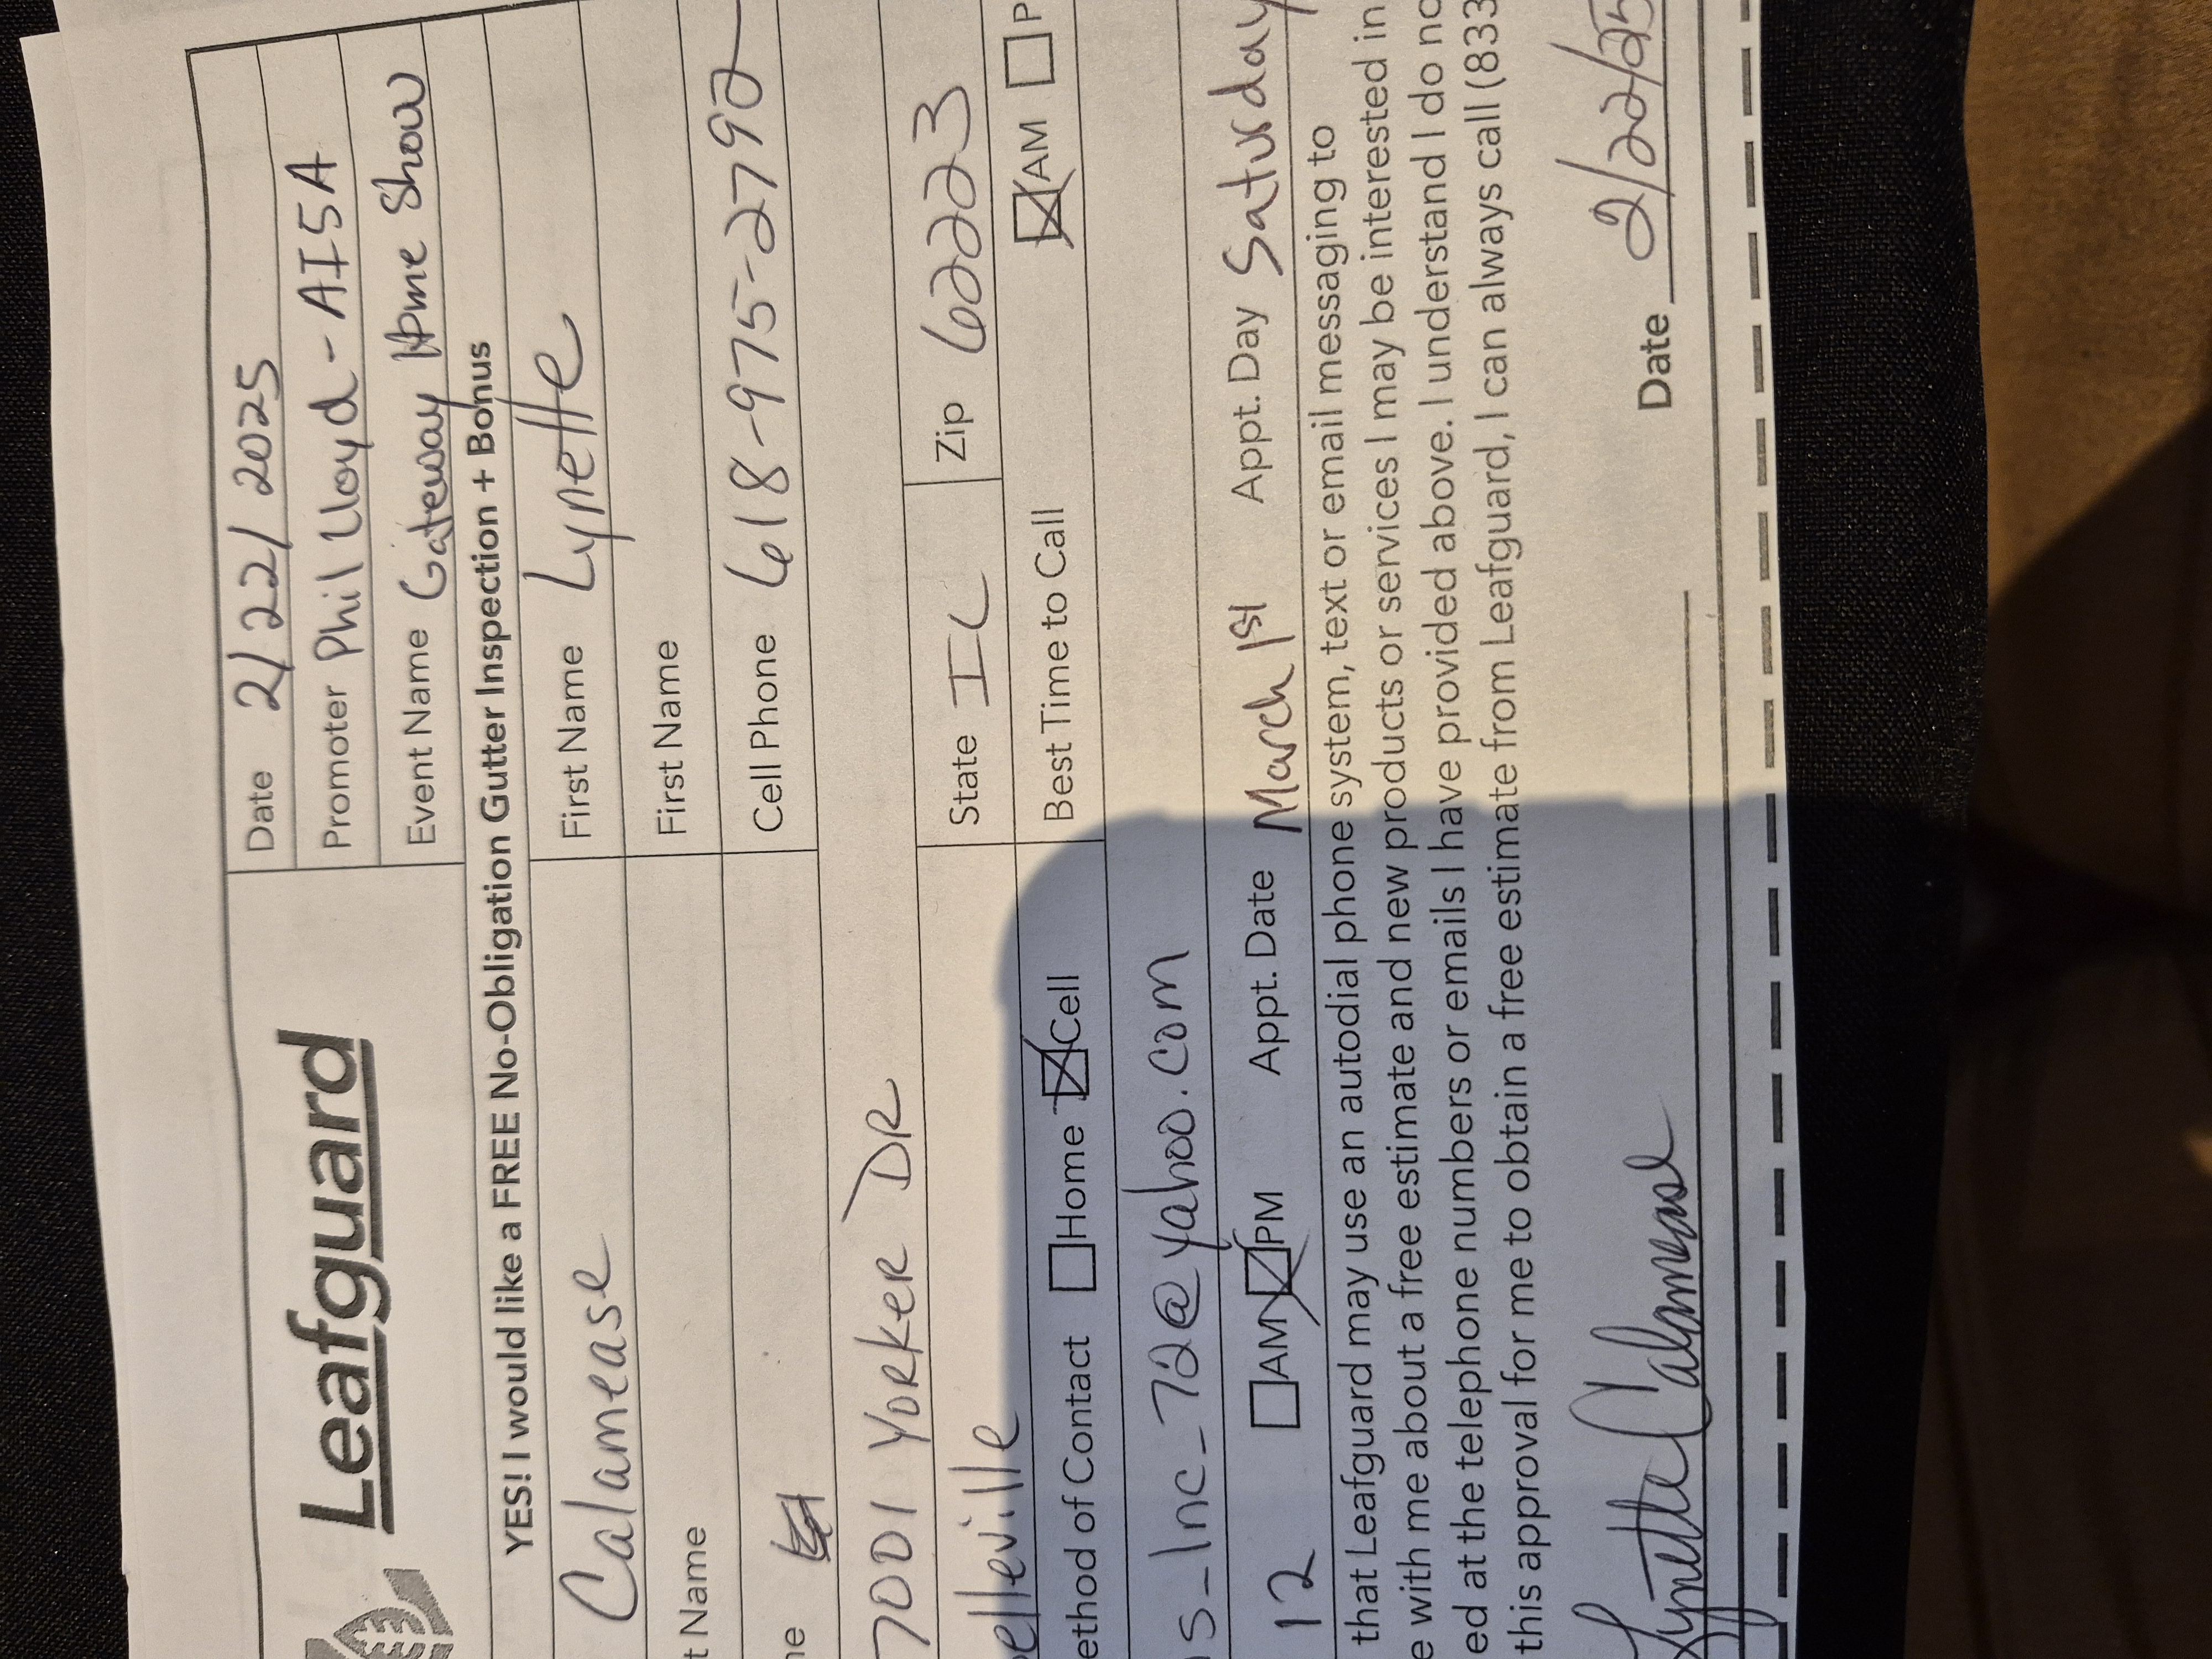 Leafguard
Date 2/22/2025
Promoter Phil Lloyd - AISA
Event Name Gateway Home Show
YES! I would like a FREE No-Obligation Gutter Inspection + Bonus
Calamease First Name Lynette
t Name First Name
ne Cell Phone 618-975-2792
7001 Yorker DR
elleville State IL Zip 62223
ethod of Contact Home Cell Best Time to Call AM P
s_Inc_72@yahoo.com
12 AM PM Appt. Date March 1st Appt. Day Saturday
that Leafguard may use an autodial phone system, text or email messaging to
e with me about a free estimate and new products or services I may be interested in
ed at the telephone numbers or emails I have provided above. I understand I do no
this approval for me to obtain a free estimate from Leafguard, I can always call (833
Lynette Calamease Date 2/22/25